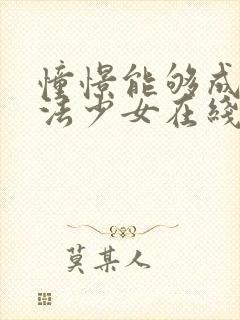 憧憬能够成
法少女在线
莫某人